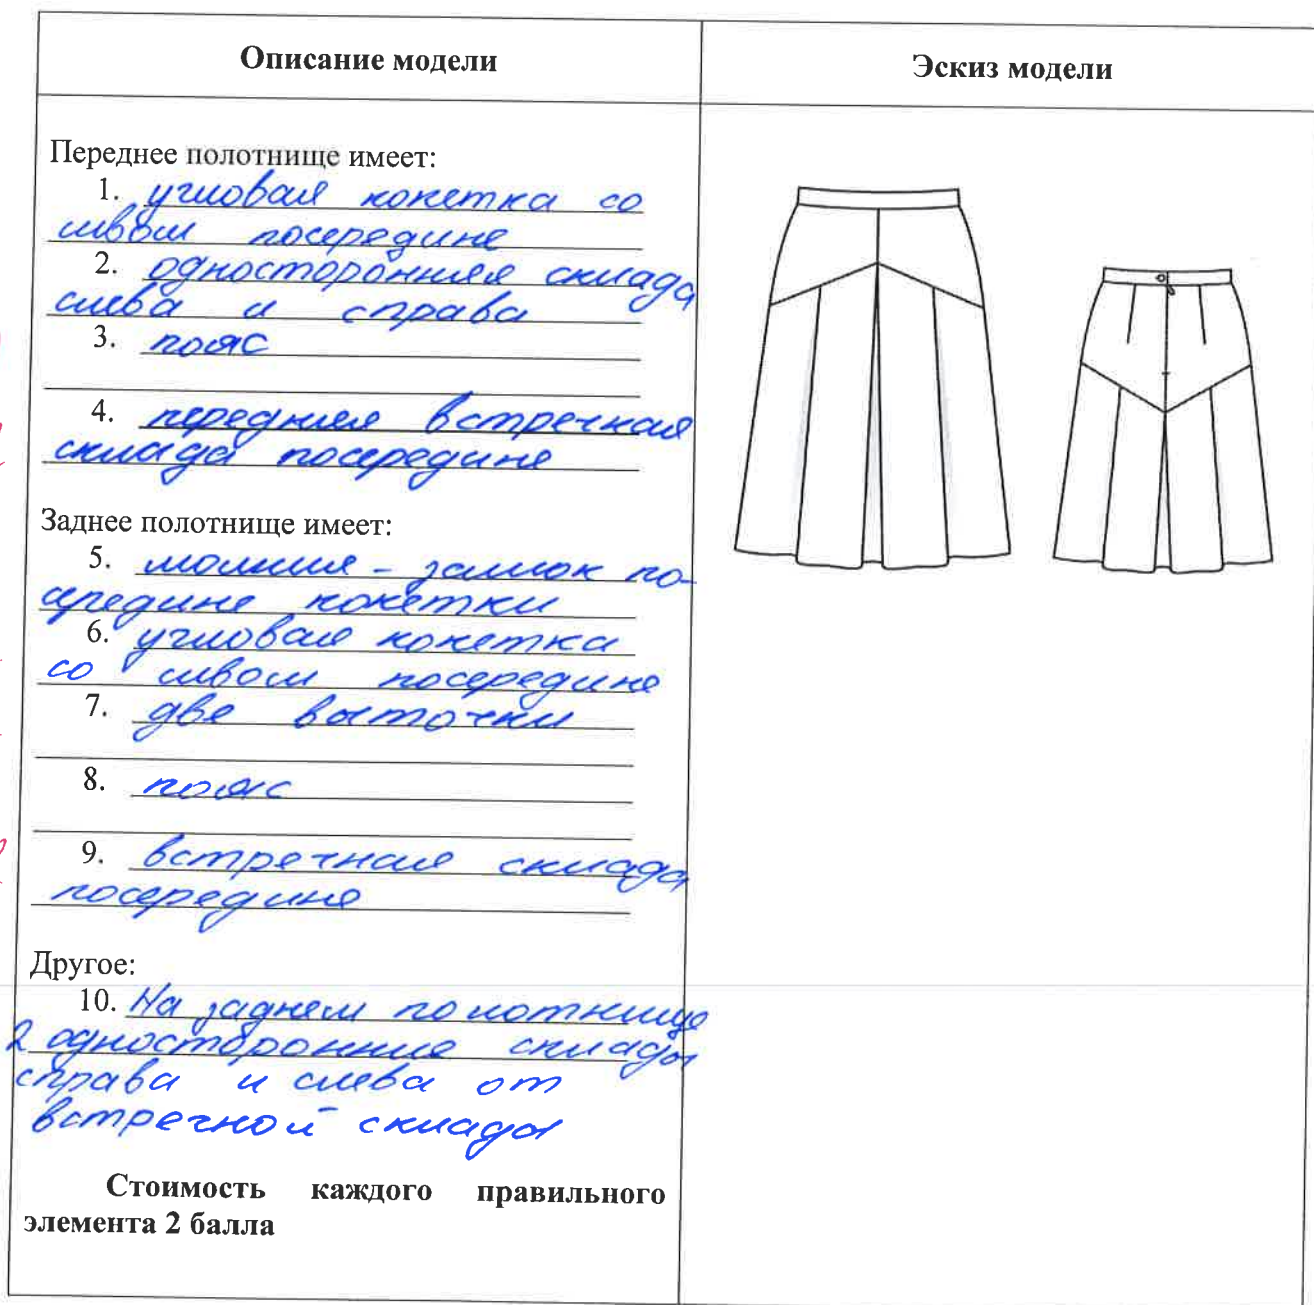 Описание модели
Эскиз модели
Переднее полотнище имеет:
1. угловая кокетка со
швом посередине
2. односторонняя склада
слева и справа
3. пояс
4. передняя встречная
склада посередине
Заднее полотнище имеет:
5. молния - замок по-
середине кокетки
6. угловая кокетка
со швом посередине
7. две выточки
8. пояс
9. встречная склада
посередине
Другое:
10. На заднем полотнище
2 односторонние склады
справа и слева от
встречной склады
Стоимость каждого правильного
элемента 2 балла